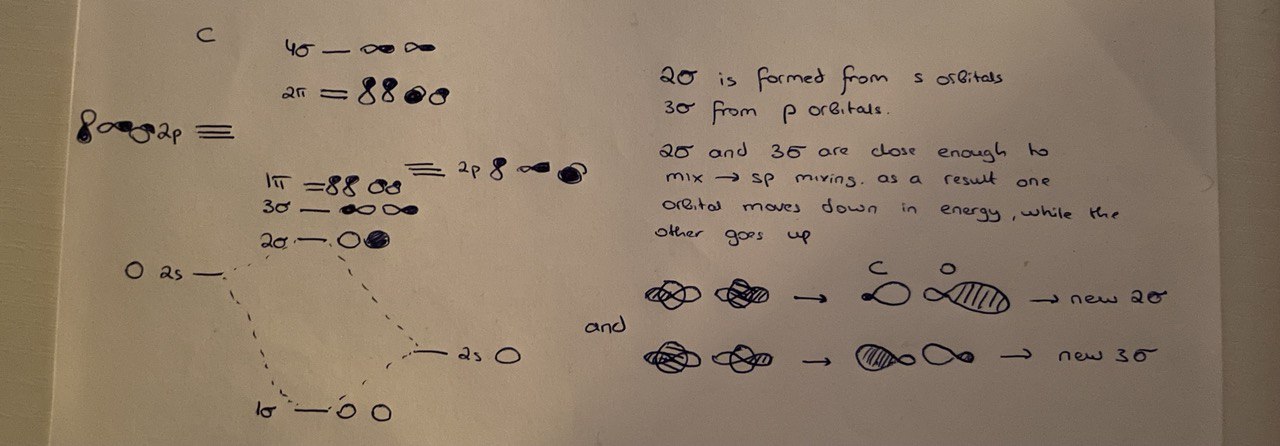 C
4σ
2π
2p
2p
1π
3σ
2σ
2s
2s
1σ
2σ is formed from s orbitals
3σ from p orbitals.
2σ and 3σ are close enough to
mix → sp mixing. as a result one
orbital moves down in energy, while the
other goes up
C O
→ → new 2σ
and
→ → new 3σ